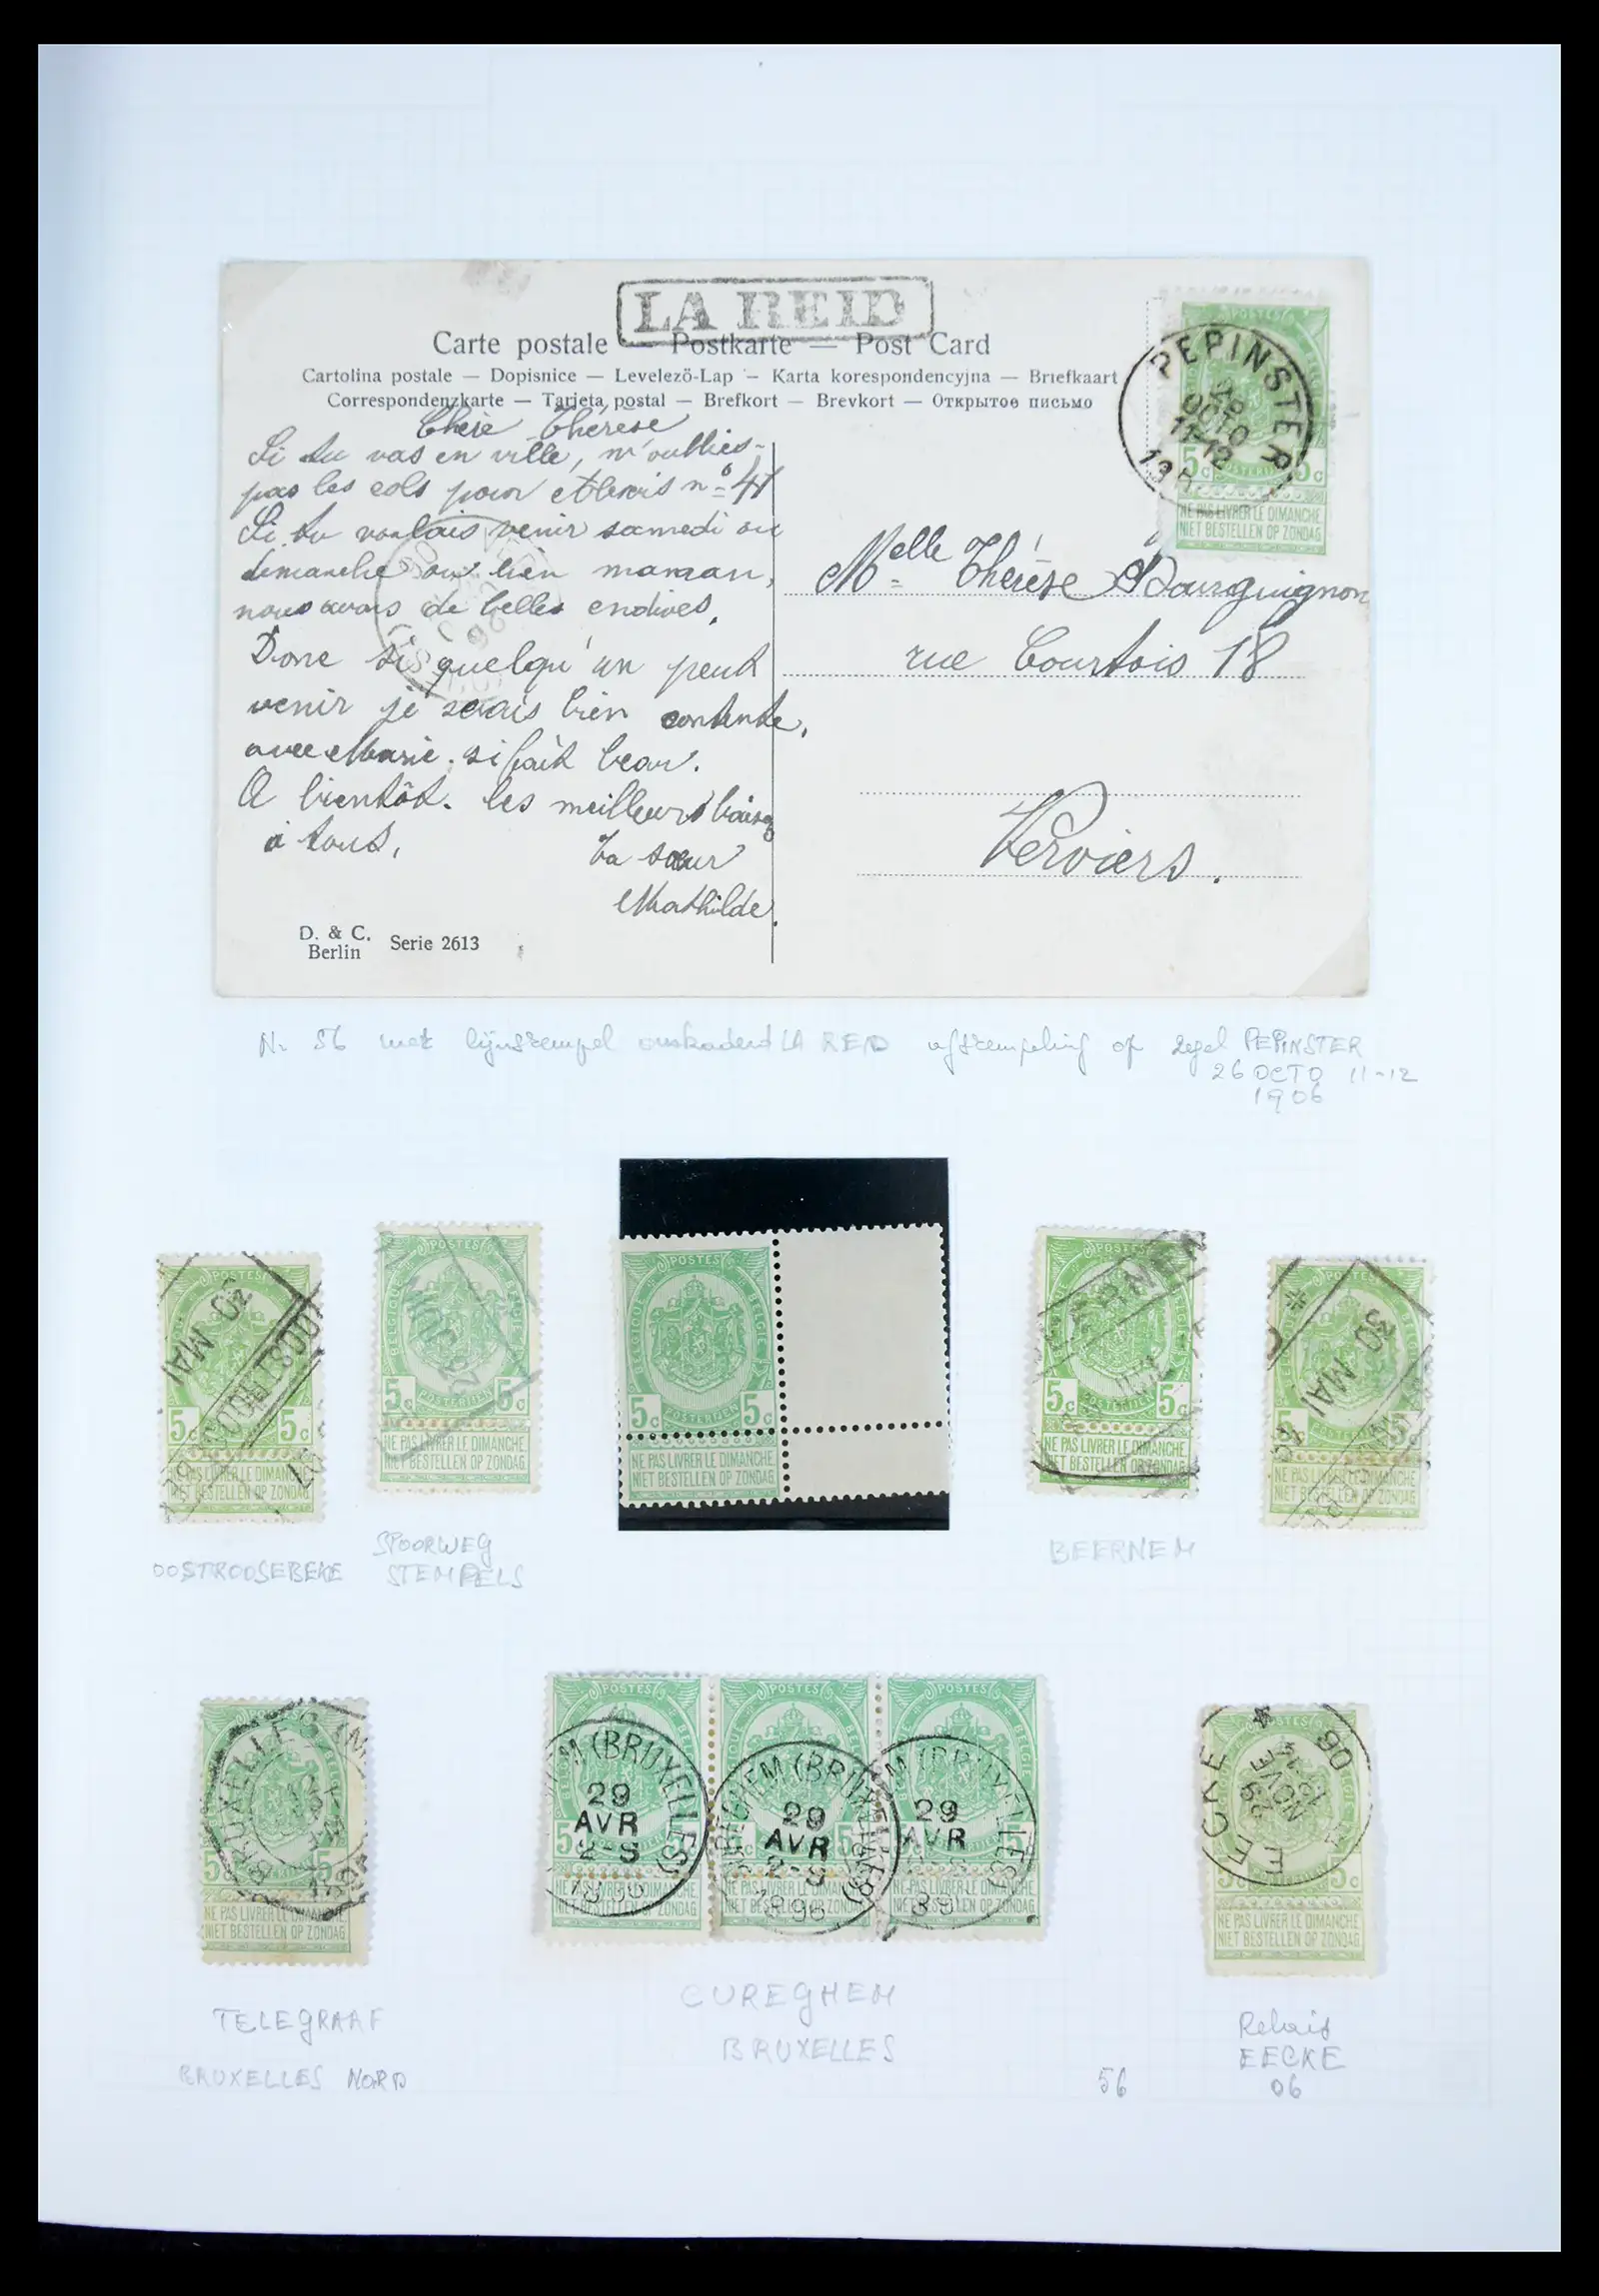 LA REID
Carte postale — Postkarte — Post Card
Cartolina postale — Dopisnice — Levelezö-Lap — Karta korespondencyjna — Briefkaart
Correspondenzkarte — Tarjeta postal — Brefkort — Brevkort — Открытое письмо
PEPINSTER
26
OCTO
11-12
Chère Thérèse
Si tu vas en ville, n'oublies
pas les cols pour n° 41
Si tu voulais venir samedi ou
dimanche ou bien maman,
nous avons de belles endives.
Donc si quelqu'un peut
venir je serais bien contente,
avec Marie. si fait beau.
A bientôt. les meilleurs baisers
à tous,
Ta sœur
Mathilde.
D. & C.
Berlin Serie 2613
Melle Thérèse Bourguignon
rue Courtois 18
Verviers.
5c 5c
NE PAS LIVRER LE DIMANCHE
NIET BESTELLEN OP ZONDAG
Nr 56 met lijnstempel omkaderd LA REID afstempeling op zegel PEPINSTER
26 OCTO 11-12
1906
POSTES
MAI
5c 5c
NE PAS LIVRER LE DIMANCHE
NIET BESTELLEN OP ZONDAG
POSTES
5c 5c
POSTERIJEN
NE PAS LIVRER LE DIMANCHE
NIET BESTELLEN OP ZONDAG
POSTES
BELGIQUE BELGIË
5c 5c
POSTERIJEN
NE PAS LIVRER LE DIMANCHE
NIET BESTELLEN OP ZONDAG
POSTES
5c 5c
NE PAS LIVRER LE DIMANCHE
NIET BESTELLEN OP ZONDAG
POSTES
30 MAI
NE PAS LIVRER LE DIMANCHE
NIET BESTELLEN OP ZONDAG
OOSTROOSEBEKE
SPOORWEG
STEMPELS
BEERNEM
BRUXELLES (N
NE PAS LIVRER LE DIMANCHE
NIET BESTELLEN OP ZONDAG
POSTES POSTES POSTES
(BRUXELLES)
29
AVR
2-S
EGHEM (BRUXELLES)
29
AVR
2-S
1896
M (BRUXELLES)
29
AVR
NE PAS LIVRER LE DIMANCHE
NIET BESTELLEN OP ZONDAG
NE PAS LIVRER LE DIMANCHE
NIET BESTELLEN OP ZONDAG
NE PAS LIVRER LE DIMANCHE
NIET BESTELLEN OP ZONDAG
EECKE
NOVE
NE PAS LIVRER LE DIMANCHE
NIET BESTELLEN OP ZONDAG
TELEGRAAF
BRUXELLES NORD
CUREGHEM
BRUXELLES
56
Relais
EECKE
06